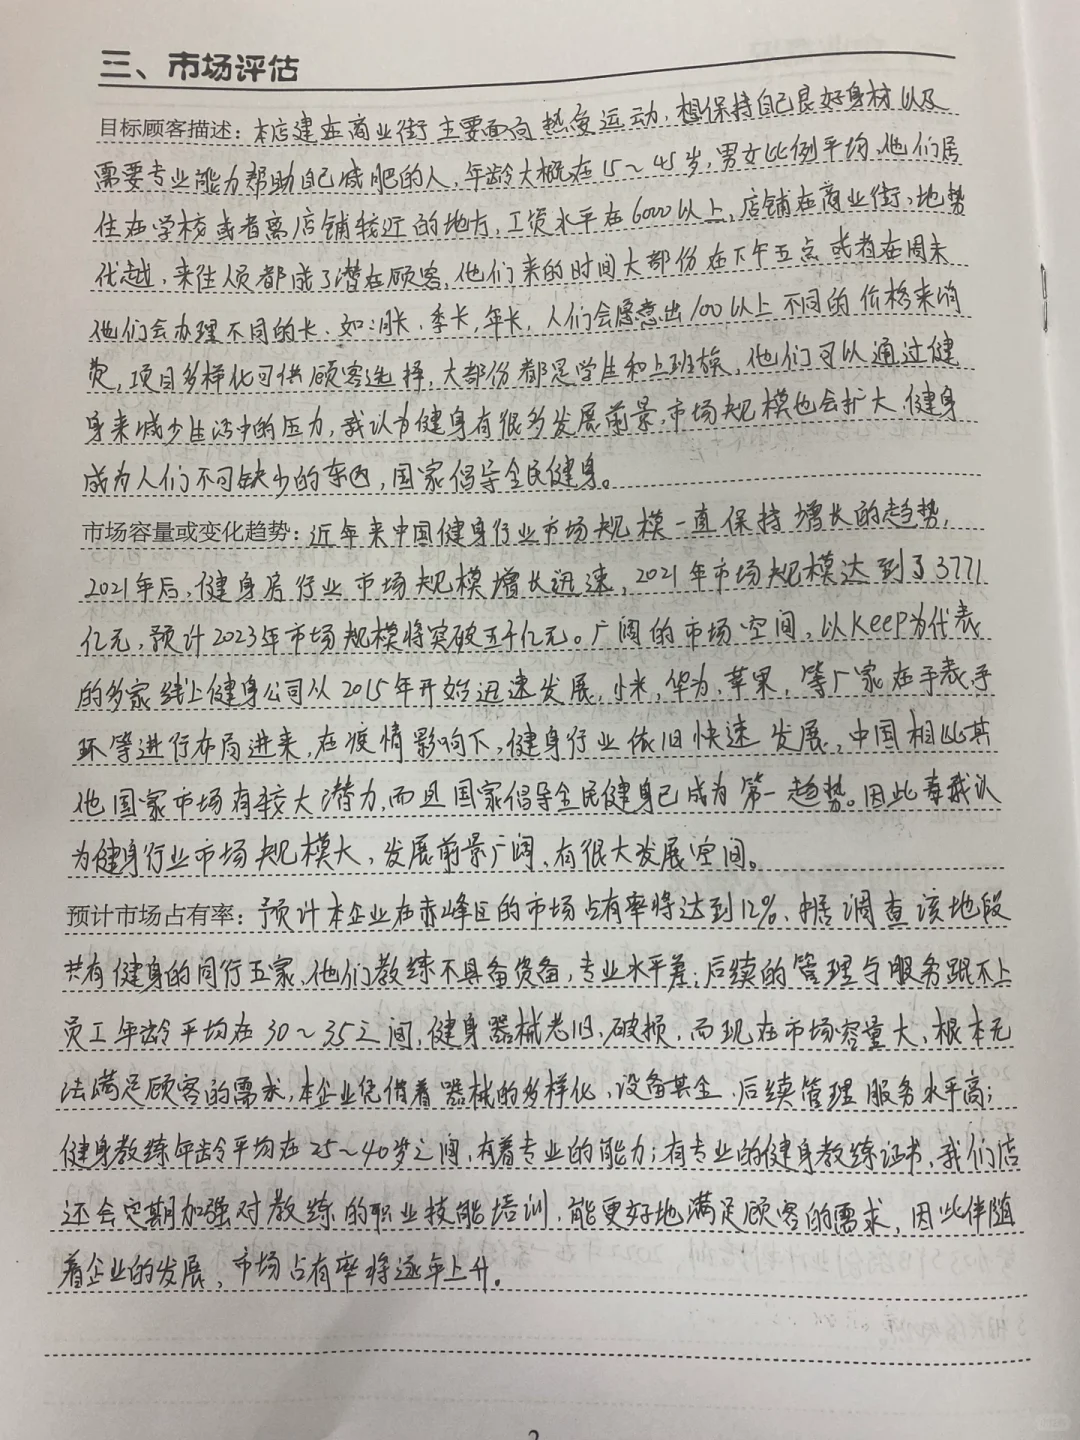 三、市场评估
目标顾客描述：本店建在商业街主要面向热爱运动，想保持自己良好身材以及
需要专业能力帮助自己减肥的人，年龄大概在15～45岁，男女比例平均，他们居
住在学校或者离店铺较近的地方，工资水平在6000以上，店铺在商业街，地势
优越，来往人员都成了潜在顾客，他们来的时间大部份在下午五点或者在周末
他们会办理不同的卡，如：月卡，季卡，年卡，人们会愿意出100以上不同的价格来消
费，项目多样化可供顾客选择，大部份都是学生和上班族，他们可以通过健
身来减少生活中的压力，我认为健身有很多发展前景，市场规模也会扩大，健身
成为人们不可缺少的东西，国家倡导全民健身。
市场容量或变化趋势：近年来中国健身行业市场规模一直保持增长的趋势，
2021年后，健身房行业市场规模增长迅速，2021年市场规模达到了3771
亿元，预计2023年市场规模将突破五千亿元。广阔的市场空间，以keep为代表
的多家线上健身公司从2015年开始迅速发展，小米，华为，苹果，等厂家在手表手
环等进行布局进来，在疫情影响下，健身行业依旧快速发展，中国相比其
他国家市场有较大潜力，而且国家倡导全民健身已成为第一趋势。因此我认
为健身行业市场规模大，发展前景广阔，有很大发展空间。
预计市场占有率：预计本企业在赤峰区的市场占有率将达到12%，据调查该地段
共有健身的同行五家，他们教练不具备资备，专业水平差；后续的管理与服务跟不上
员工年龄平均在30～35之间，健身器械老旧，破损，而现在市场容量大，根本无
法满足顾客的需求，本企业凭借着器械的多样化，设备其全，后续管理服务水平高；
健身教练年龄平均在25～40岁之间，有着专业的能力；有专业的健身教练证书，我们店
还会定期加强对教练的职业技能培训，能更好地满足顾客的需求，因此伴随
着企业的发展，市场占有率将逐年上升。
2